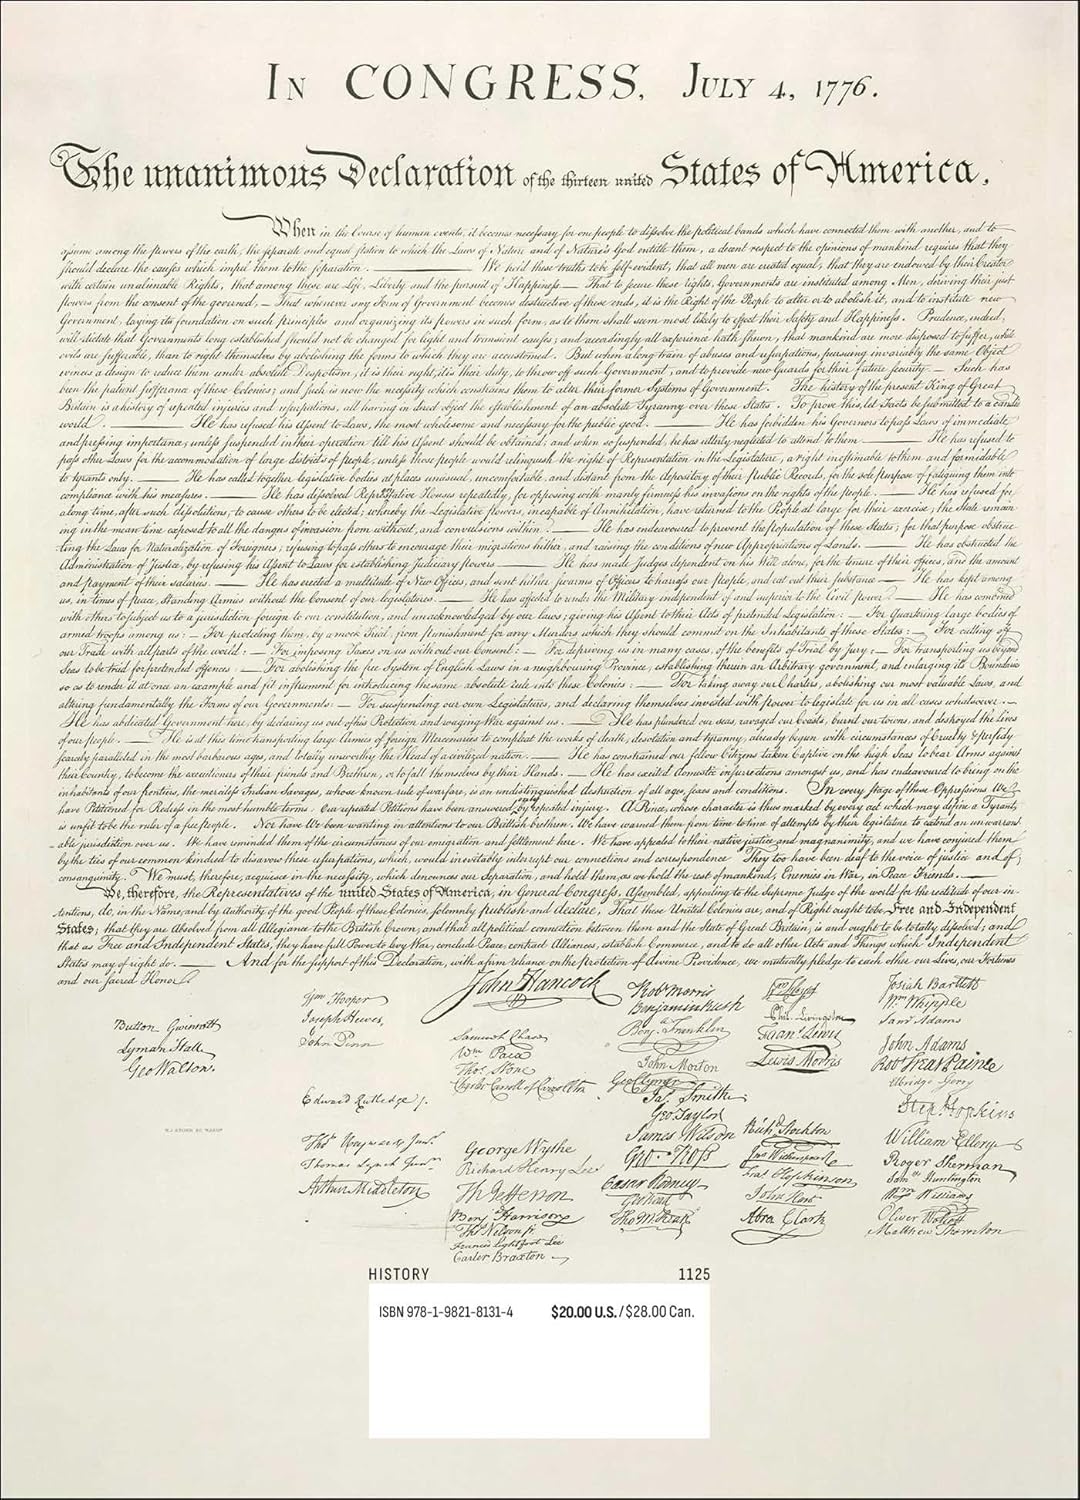 IN CONGRESS, JULY 4, 1776.
The unanimous Declaration of the thirteen united States of America,
When in the Course of human events, it becomes necessary for one people to dissolve the political bands which have connected them with another, and to
assume among the powers of the earth, the separate and equal station to which the Laws of Nature and of Nature's God entitle them, a decent respect to the opinions of mankind requires that they
should declare the causes which impel them to the separation. — We hold these truths to be self-evident, that all men are created equal, that they are endowed by their Creator
with certain unalienable Rights, that among these are Life, Liberty and the pursuit of Happiness — That to secure these rights, Governments are instituted among Men, deriving their just
powers from the consent of the governed, — That whenever any Form of Government becomes destructive of these ends, it is the Right of the People to alter or to abolish it, and to institute new
Government, laying its foundation on such principles and organizing its powers in such form, as to them shall seem most likely to effect their Safety and Happiness. Prudence, indeed,
will dictate that Governments long established should not be changed for light and transient causes; and accordingly all experience hath shewn, that mankind are more disposed to suffer, while
evils are sufferable, than to right themselves by abolishing the forms to which they are accustomed. But when a long train of abuses and usurpations, pursuing invariably the same Object
evinces a design to reduce them under absolute Despotism, it is their right, it is their duty, to throw off such Government, and to provide new Guards for their future security. — Such has
been the patient sufferance of these Colonies; and such is now the necessity which constrains them to alter their former Systems of Government. The history of the present King of Great
Britain is a history of repeated injuries and usurpations, all having in direct object the establishment of an absolute Tyranny over these States. To prove this, let Facts be submitted to a candid
world. — He has refused his Assent to Laws, the most wholesome and necessary for the public good. — He has forbidden his Governors to pass Laws of immediate
and pressing importance, unless suspended in their operation till his Assent should be obtained; and when so suspended, he has utterly neglected to attend to them. — He has refused to
pass other Laws for the accommodation of large districts of people, unless those people would relinquish the right of Representation in the Legislature, a right inestimable to them and formidable
to tyrants only. — He has called together legislative bodies at places unusual, uncomfortable, and distant from the depository of their public Records, for the sole purpose of fatiguing them into
compliance with his measures. — He has dissolved Representative Houses repeatedly, for opposing with manly firmness his invasions on the rights of the people. — He has refused for
a long time, after such dissolutions, to cause others to be elected; whereby the Legislative powers, incapable of Annihilation, have returned to the People at large for their exercise; the State remain
ing in the mean time exposed to all the dangers of invasion from without, and convulsions within. — He has endeavoured to prevent the population of these States; for that purpose obstruc
ting the Laws for Naturalization of Foreigners; refusing to pass others to encourage their migrations hither, and raising the conditions of new Appropriations of Lands. — He has obstructed the
Administration of Justice, by refusing his Assent to Laws for establishing Judiciary powers — He has made Judges dependent on his Will alone, for the tenure of their offices, and the amount
and payment of their salaries. — He has erected a multitude of New Offices, and sent hither swarms of Officers to harass our people, and eat out their substance — He has kept among
us, in times of peace, Standing Armies without the Consent of our legislatures. — He has affected to render the Military independent of and superior to the Civil power. — He has combined
with others to subject us to a jurisdiction foreign to our constitution, and unacknowledged by our laws; giving his Assent to their Acts of pretended Legislation: — For Quartering large bodies of
armed troops among us: — For protecting them, by a mock Trial, from punishment for any Murders which they should commit on the Inhabitants of these States: — For cutting off
our Trade with all parts of the world: — For imposing Taxes on us without our Consent: — For depriving us in many cases, of the benefits of Trial by jury: — For transporting us beyond
Seas to be tried for pretended offences — For abolishing the free System of English Laws in a neighbouring Province, establishing therein an Arbitrary government, and enlarging its Boundaries
so as to render it at once an example and fit instrument for introducing the same absolute rule into these Colonies: — For taking away our Charters, abolishing our most valuable Laws, and
altering fundamentally the Forms of our Governments: — For suspending our own Legislatures, and declaring themselves invested with power to legislate for us in all cases whatsoever. —
He has abdicated Government here, by declaring us out of his Protection and waging War against us. — He has plundered our seas, ravaged our Coasts, burnt our towns, and destroyed the lives
of our people. — He is at this time transporting large Armies of foreign Mercenaries to compleat the works of death, desolation and tyranny, already begun with circumstances of Cruelty & perfidy
scarcely paralleled in the most barbarous ages, and totally unworthy the Head of a civilized nation. — He has constrained our fellow Citizens taken Captive on the high Seas to bear Arms against
their Country, to become the executioners of their friends and Brethren, or to fall themselves by their Hands. — He has excited domestic insurrections amongst us, and has endeavoured to bring on the
inhabitants of our frontiers, the merciless Indian Savages, whose known rule of warfare, is an undistinguished destruction of all ages, sexes and conditions. In every stage of these Oppressions We
have Petitioned for Redress in the most humble terms: Our repeated Petitions have been answered only by repeated injury. A Prince, whose character is thus marked by every act which may define a Tyrant,
is unfit to be the ruler of a free people. Nor have We been wanting in attentions to our Brittish brethren. We have warned them from time to time of attempts by their legislature to extend an unwarrant
able jurisdiction over us. We have reminded them of the circumstances of our emigration and settlement here. We have appealed to their native justice and magnanimity, and we have conjured them
by the ties of our common kindred to disavow these usurpations, which, would inevitably interrupt our connections and correspondence They too have been deaf to the voice of justice and of
consanguinity. We must, therefore, acquiesce in the necessity, which denounces our Separation, and hold them, as we hold the rest of mankind, Enemies in War, in Peace Friends. —
We, therefore, the Representatives of the united States of America, in General Congress, Assembled, appealing to the Supreme Judge of the world for the rectitude of our in-
tentions, do, in the Name, and by Authority of the good People of these Colonies, solemnly publish and declare, That these United Colonies are, and of Right ought to be Free and Independent
States; that they are Absolved from all Allegiance to the British Crown, and that all political connection between them and the State of Great Britain, is and ought to be totally dissolved; and
that as Free and Independent States, they have full Power to levy War, conclude Peace, contract Alliances, establish Commerce, and to do all other Acts and Things which Independent
States may of right do. — And for the support of this Declaration, with a firm reliance on the protection of divine Providence, we mutually pledge to each other our Lives, our Fortunes
and our sacred Honor.
Button Gwinnett
Lyman Hall
Geo Walton.
Wm Hooper
Joseph Hewes,
John Penn
Edward Rutledge /.
Thos Heyward Junr.
Thomas Lynch Junr.
Arthur Middleton
John Hancock
Samuel Chase
Wm Paca
Thos Stone
Charles Carroll of Carrollton
George Wythe
Richard Henry Lee
Th Jefferson
Benj Harrison
Thos Nelson jr.
Francis Lightfoot Lee
Carter Braxton
Robt Morris
Benjamin Rush
Benj. Franklin
John Morton
Geo Clymer
Jas. Smith
Geo Taylor
James Wilson
Geo. Ross
Caesar Rodney
Geo Read
Tho M:Kean
Wm Floyd
Phil. Livingston
Frans. Lewis
Lewis Morris
Richd Stockton
Jno Witherspoon
Fras. Hopkinson
John Hart
Abra Clark
Josiah Bartlett
Wm Whipple
Saml Adams
John Adams
Robt Treat Paine
Elbridge Gerry
Step. Hopkins
William Ellery
Roger Sherman
Saml Huntington
Wm Williams
Oliver Wolcott
Matthew Thornton
HISTORY 1125
ISBN 978-1-9821-8131-4 $20.00 U.S./$28.00 Can.